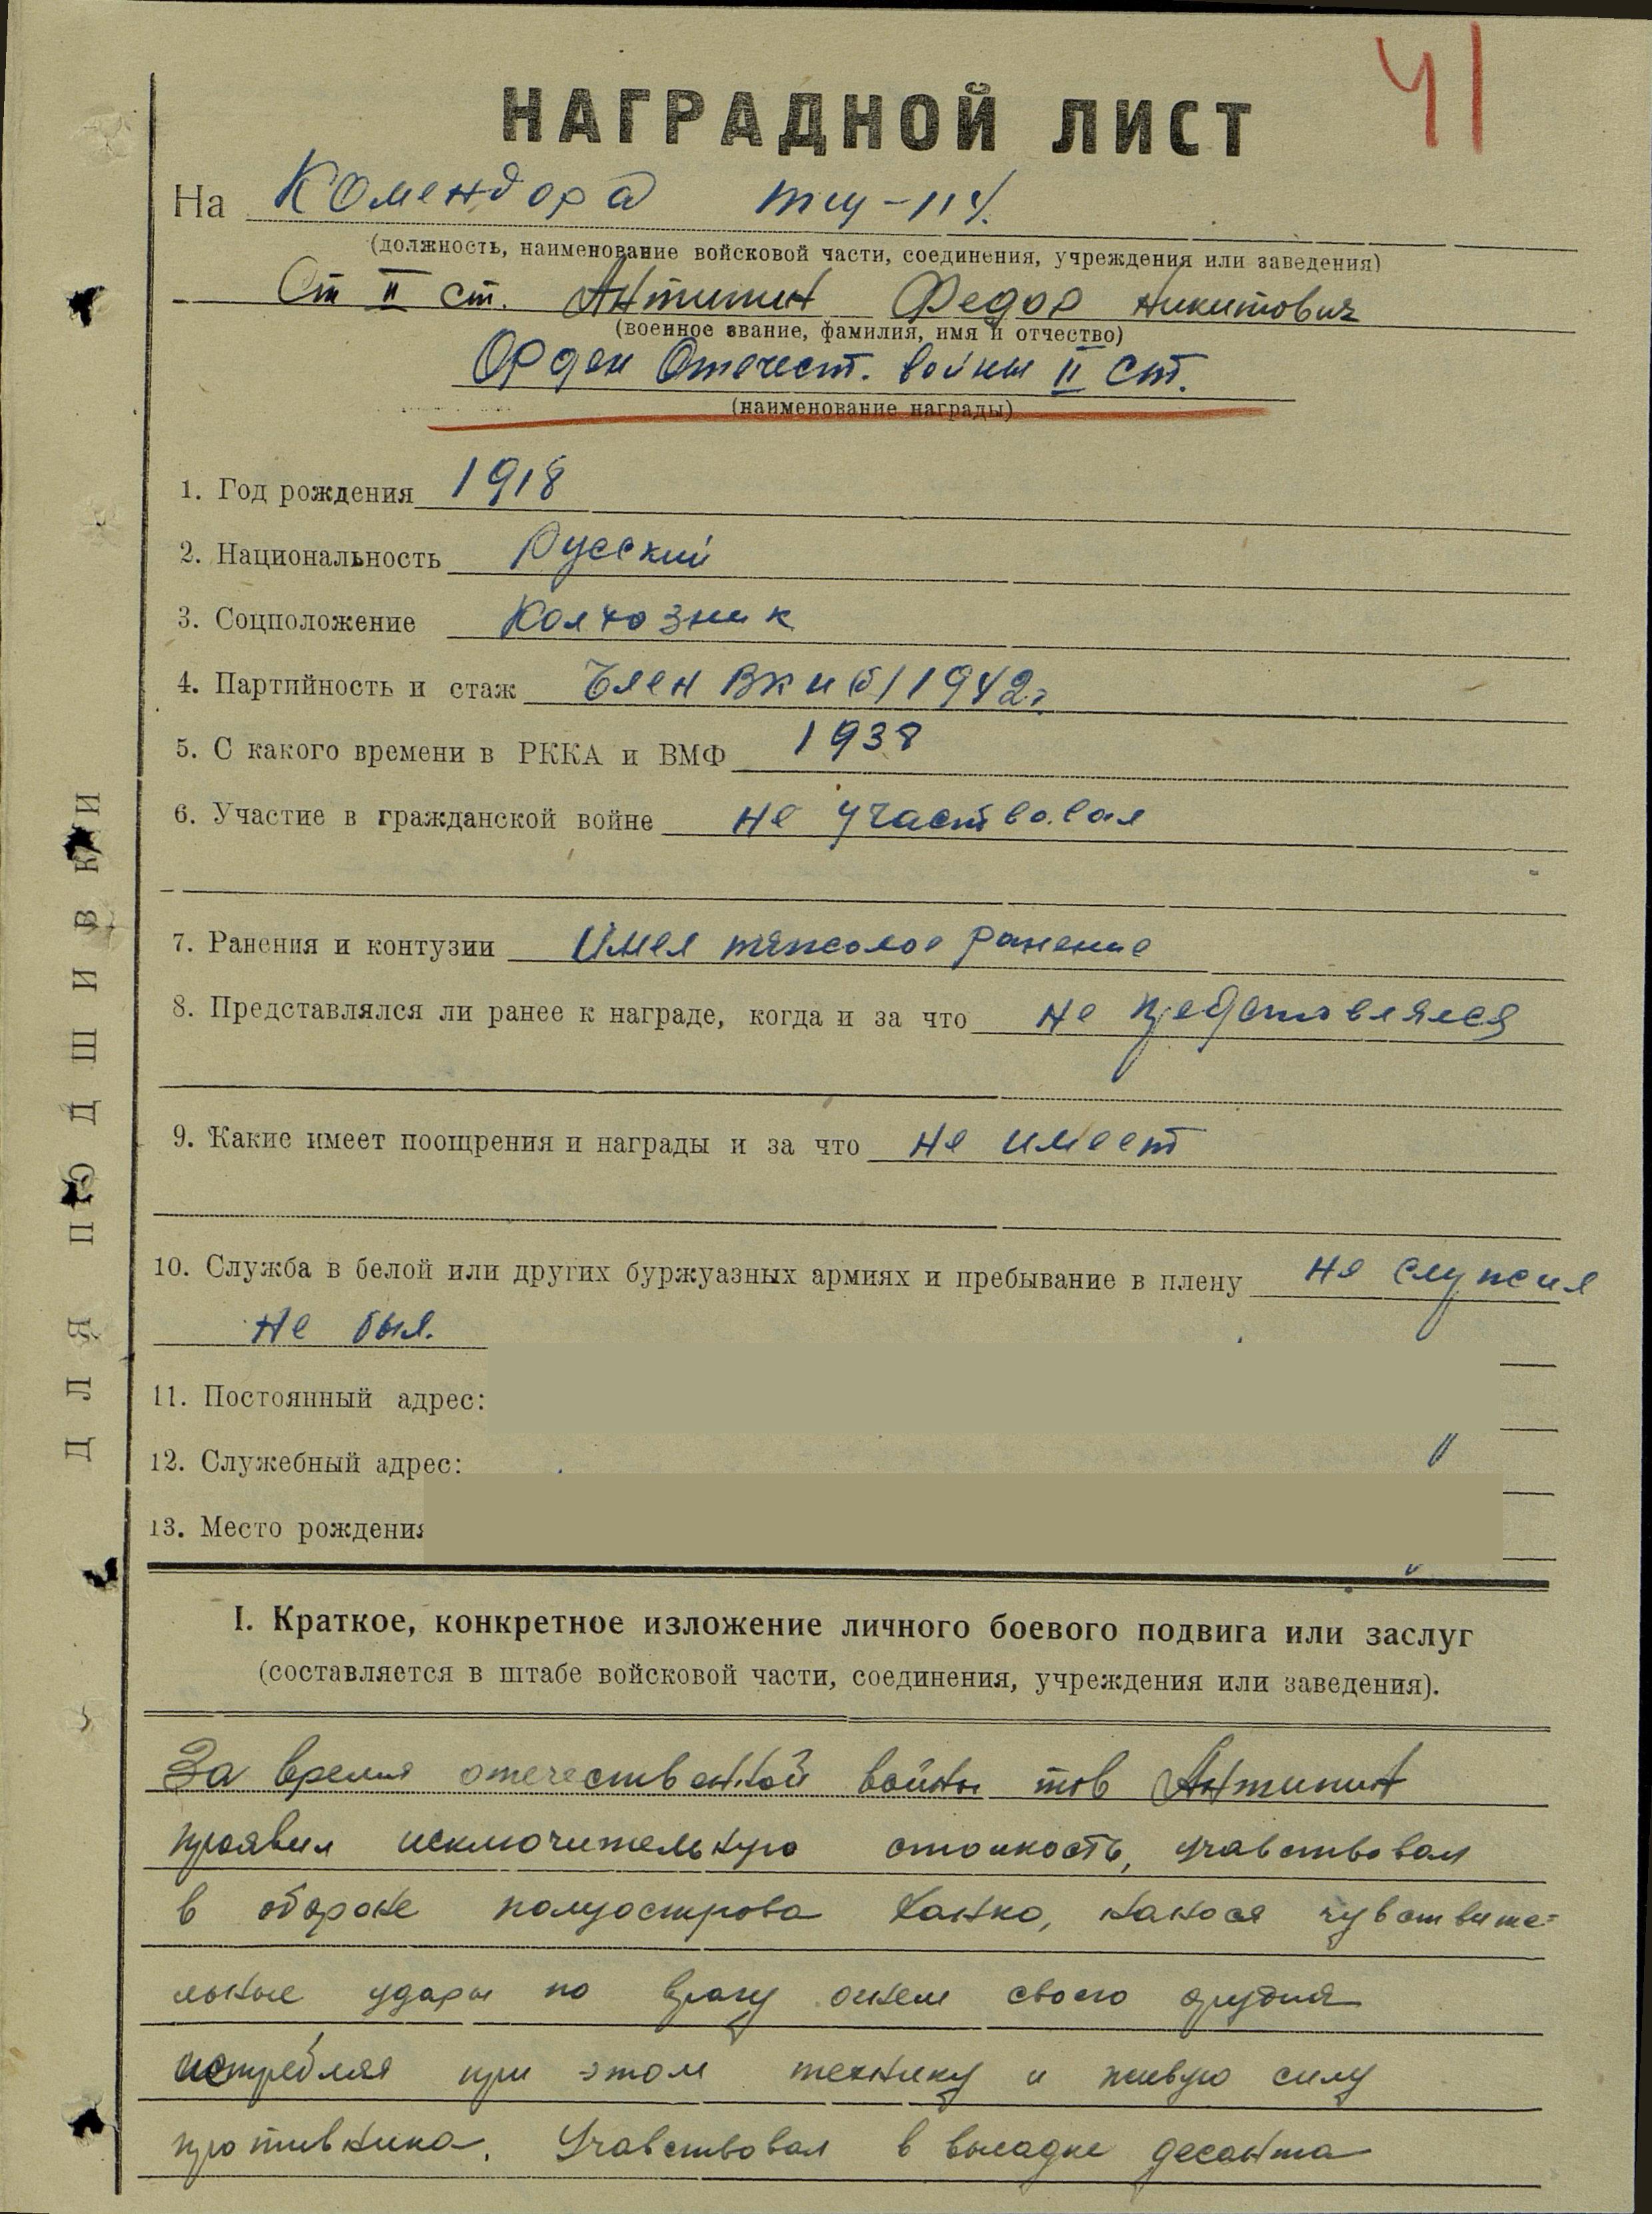 41
НАГРАДНОЙ ЛИСТ
На Комендора тщ-114.
(должность, наименование войсковой части, соединения, учреждения или заведения)
Ст II ст. Антипин Федор Никитович
(военное звание, фамилия, имя и отчество)
Орден Отечест. войны II ст.
(наименование награды)
1. Год рождения 1918
2. Национальность Русский
3. Соцположение Колхозник
4. Партийность и стаж Член ВКП(б) 1942г
5. С какого времени в РККА и ВМФ 1938
6. Участие в гражданской войне не участвовал
7. Ранения и контузии Имел тяжолое ранение
8. Представлялся ли ранее к награде, когда и за что не представлялся
9. Какие имеет поощрения и награды и за что не имеет
10. Служба в белой или других буржуазных армиях и пребывание в плену не служил
не был.
11. Постоянный адрес:
12. Служебный адрес:
13. Место рождения
ДЛЯ ПОДШИВКИ
I. Краткое, конкретное изложение личного боевого подвига или заслуг
(составляется в штабе войсковой части, соединения, учреждения или заведения).
За время отечественной войны тов Антипин
проявил исключительную стоикость, учавствовал
в обороне полуострова Ханко, нанося чувствите-
льные удары по врагу огнем своего орудия
истребляя при этом технику и живую силу
противника. Учавствовал в высадке десанта